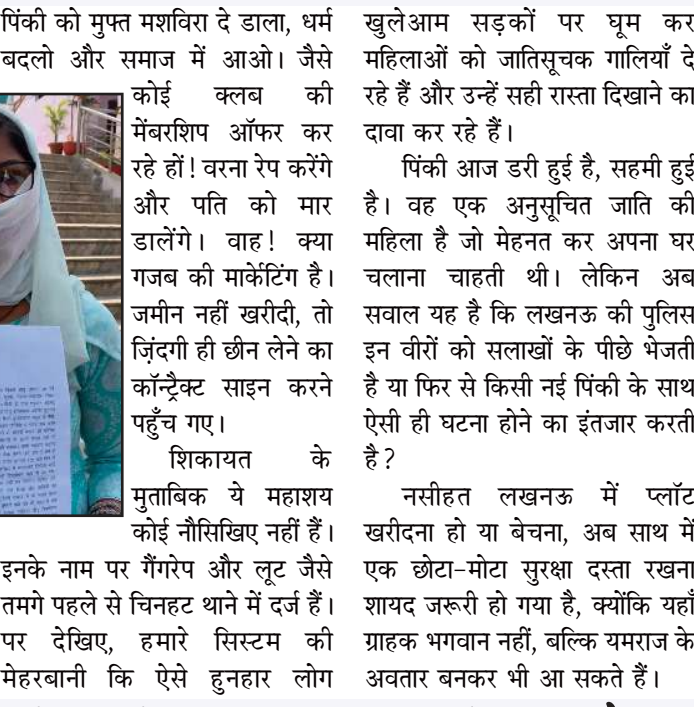 पिंकी को मुफ्त मशविरा दे डाला, धर्म
बदलो और समाज में आओ। जैसे
कोई क्लब की
मेंबरशिप ऑफर कर
रहे हों! वरना रेप करेंगे
और पति को मार
डालेंगे। वाह! क्या
गजब की मार्केटिंग है।
जमीन नहीं खरीदी, तो
ज़िंदगी ही छीन लेने का
कॉन्ट्रैक्ट साइन करने
पहुँच गए।
शिकायत के
मुताबिक ये महाशय
कोई नौसिखिए नहीं हैं।
इनके नाम पर गैंगरेप और लूट जैसे
तमगे पहले से चिनहट थाने में दर्ज हैं।
पर देखिए, हमारे सिस्टम की
मेहरबानी कि ऐसे हुनहार लोग
खुलेआम सड़कों पर घूम कर
महिलाओं को जातिसूचक गालियाँ दे
रहे हैं और उन्हें सही रास्ता दिखाने का
दावा कर रहे हैं।
पिंकी आज डरी हुई है, सहमी हुई
है। वह एक अनुसूचित जाति की
महिला है जो मेहनत कर अपना घर
चलाना चाहती थी। लेकिन अब
सवाल यह है कि लखनऊ की पुलिस
इन वीरों को सलाखों के पीछे भेजती
है या फिर से किसी नई पिंकी के साथ
ऐसी ही घटना होने का इंतजार करती
है?
नसीहत लखनऊ में प्लॉट
खरीदना हो या बेचना, अब साथ में
एक छोटा-मोटा सुरक्षा दस्ता रखना
शायद जरूरी हो गया है, क्योंकि यहाँ
ग्राहक भगवान नहीं, बल्कि यमराज के
अवतार बनकर भी आ सकते हैं।